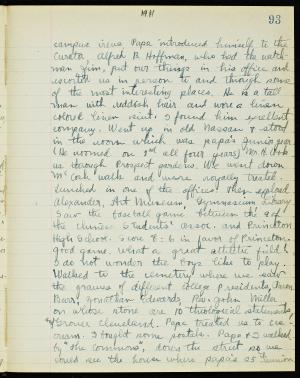 1911
93
campus. Papa introduced himself to the
Curator Alfred B. Hoffman, who had the watch-
man Jim, put our things in his office and
escorted us in person to and through some
of the most interesting places. He is a tall
man with reddish hair and wore a linen
colored linen suit. I found him excellent
company. Went up in old Nassau & stood
in the room which was papa's Junior year
(He roomed on 2nd all four years). Mr. H. took
us through Prospect gardens. We went down
McCosh walk and were royally treated.
Lunched in one of the offices. Then explored
Alexander, Art Museum, Gymnasium, Library
Saw the baseball game between the 9 of
the Chinese Students' Assoc. and Princeton
High School. Score 8 : 6 in favor of Princeton.
Good game. What a great athletic field!
I do not wonder the boys like to play.
Walked to the cemetery where we saw
the graves of different College Presidents, Aaron
Burr, Jonathan Edwards, Rev. John Miller
on whose stone are 10 theological statements,
Grover Cleveland. Papa treated us to ice-
cream. I bought some postals. Papa & I walked
by "The Commons", down the street so we
could see the house where papa's 25 reunion